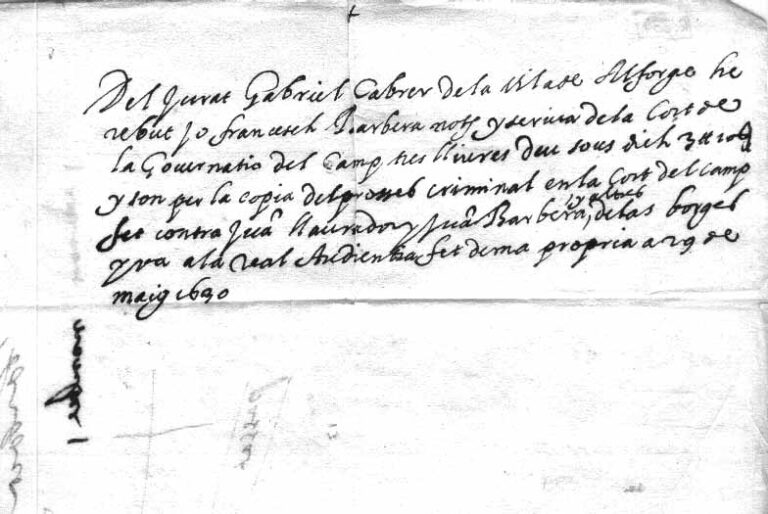 Del Jurat Gabriel Cabrer de la vila de Alforge he
rebut jo francesch Barbera notj y scriva de la Cort de
la Governatio del Camp tres lliures deu sous dich 3 ℔ 10 ß
y son per la copia del prosses criminal en la Cort del camp
y altres
fet contra Juā llaurador y Juā Barbera, de las borges
y va a la real Audientia fet de ma propria a 29 de
maig 1630